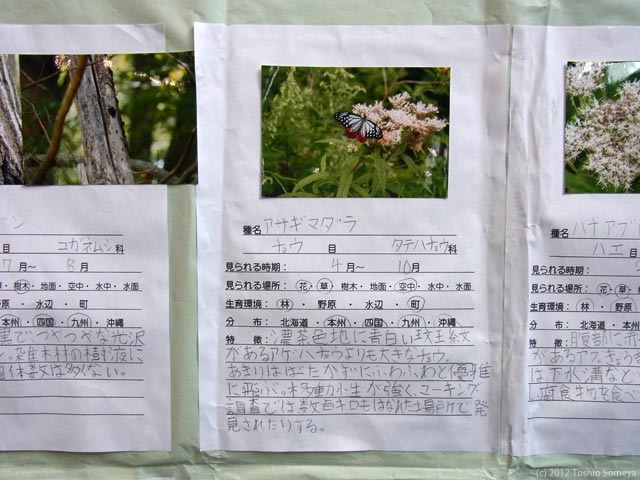 コガネムシ科
7月～8月
樹木・地面・空中・水中・水面
野原・水辺・町
本州・四国・九州・沖縄
黒でつやつやな光沢
雑木林の樹液に
個体数は多くない。
種名 アサギマダラ
チョウ目 タテハチョウ科
見られる時期: 4月～10月
見られる場所: 花・草・樹木・地面・空中・水中・水面
生育環境: 林・野原・水辺・町
分布: 北海道・本州・四国・九州・沖縄
特徴: 濃茶色地に青白い斑紋
があるアゲハチョウよりも大きなチョウ。
あまりはばたかずにふわふわと優雅
に飛ぶ。移動性が強く、マーキング
調査では数百キロもはなれた場所で発
見されたりする。
種名 ハナアブ
ハエ目
見られる時期:
見られる場所: 花・草
生育環境: 林・
分布: 北海道・本
特徴: 腹部に赤
がある
は下水溝など
腐食物を食べ
(c) 2012 Toshio Someya